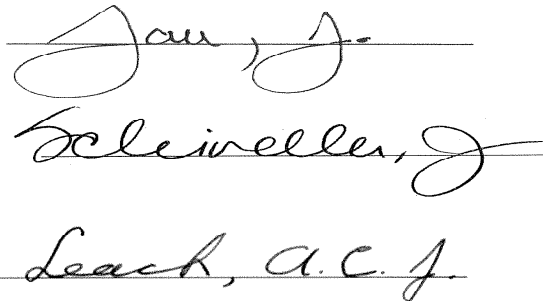 Lau, J.
Schindler, J
Leach, A.C.J.